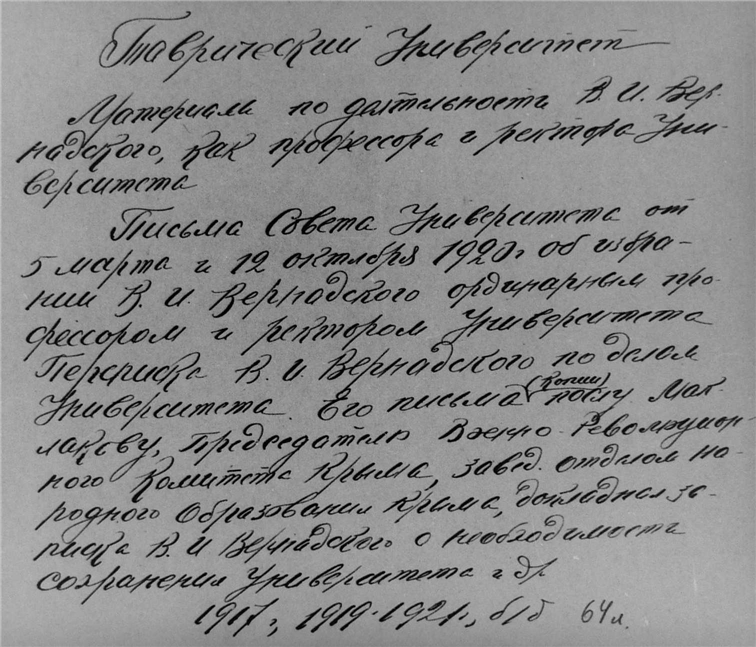 Таврический Университет
Материалы по деятельности В. И. Вер-
надского, как профессора и ректора Уни-
верситета
Письма Совета Университета от
5 марта и 12 октября 1920г об избра-
нии В. И. Вернадского ординарным про-
фессором и ректором Университета
Переписка В. И. Вернадского по делам
Университета. Его письма (копии) послу Мак-
лакову, Председателю Военно-Революцион-
ного Комитета Крыма, завед. отделом на-
родного Образования Крыма, докладная за-
писка В. И Вернадского о необходимости
сохранения Университета и др
1917г, 1919-1921г, б/д 64л.